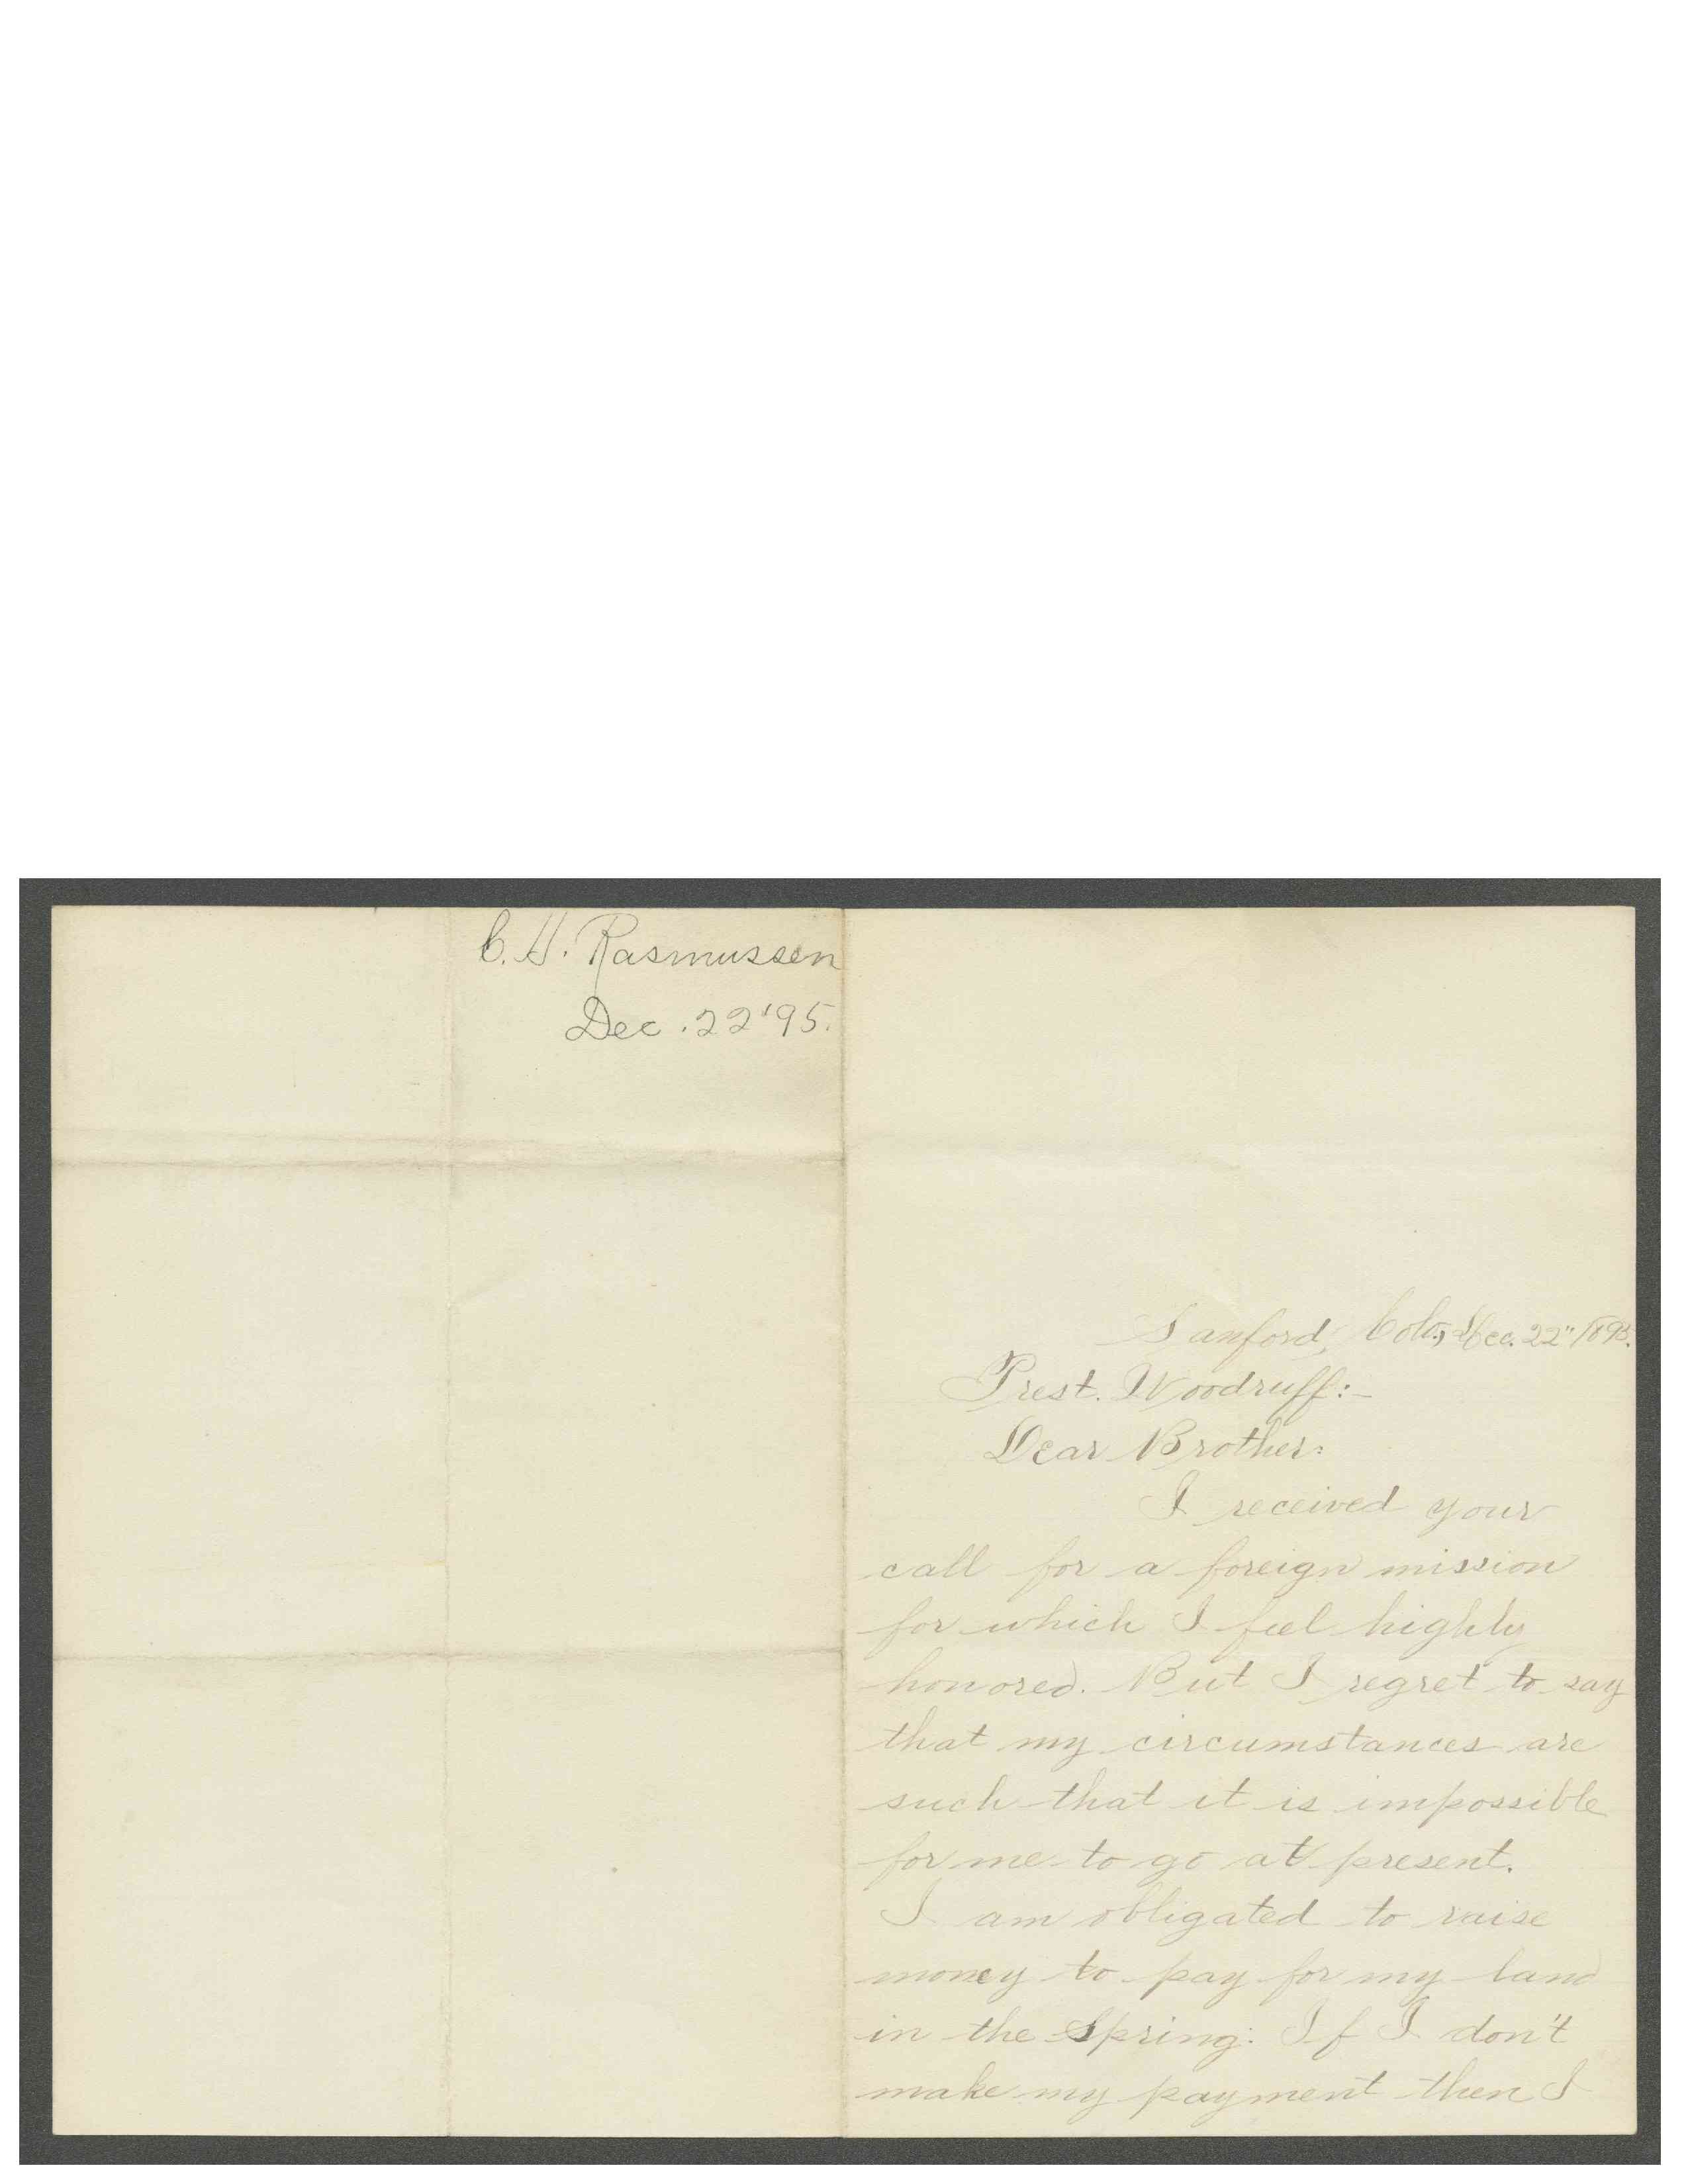 C. H. Rasmussen
Dec. 22 '95.
Sanford, Colo, Dec. 22" 1895.
Prest. Woodruff:-
Dear Brother:
I received your
call for a foreign mission
for which I feel highly
honored. But I regret to say
that my circumstances are
such that it is impossible
for me to go at present.
I am obligated to raise
money to pay for my land
in the Spring: If I don't
make my payment then I